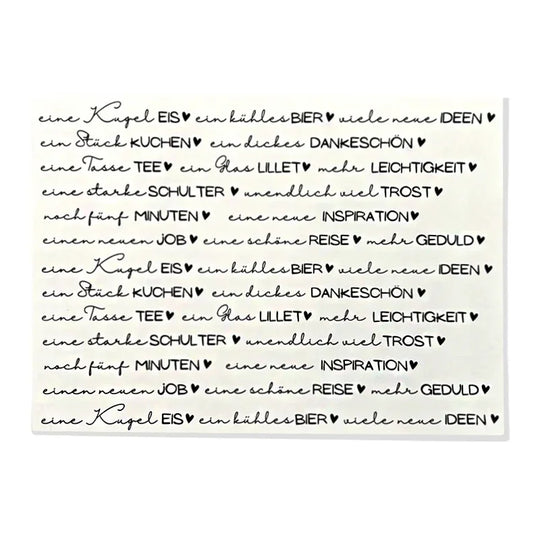 eine Kugel EIS♥ ein kühles BIER♥ viele neue IDEEN♥
ein Stück KUCHEN♥ ein dickes DANKESCHÖN♥
eine Tasse TEE♥ ein Glas LILLET♥ mehr LEICHTIGKEIT♥
eine starke SCHULTER♥ unendlich viel TROST♥
noch fünf MINUTEN♥ eine neue INSPIRATION♥
einen neuen JOB♥ eine schöne REISE♥ mehr GEDULD♥
eine Kugel EIS♥ ein kühles BIER♥ viele neue IDEEN♥
ein Stück KUCHEN♥ ein dickes DANKESCHÖN♥
eine Tasse TEE♥ ein Glas LILLET♥ mehr LEICHTIGKEIT♥
eine starke SCHULTER♥ unendlich viel TROST♥
noch fünf MINUTEN♥ eine neue INSPIRATION♥
einen neuen JOB♥ eine schöne REISE♥ mehr GEDULD♥
eine Kugel EIS♥ ein kühles BIER♥ viele neue IDEEN♥